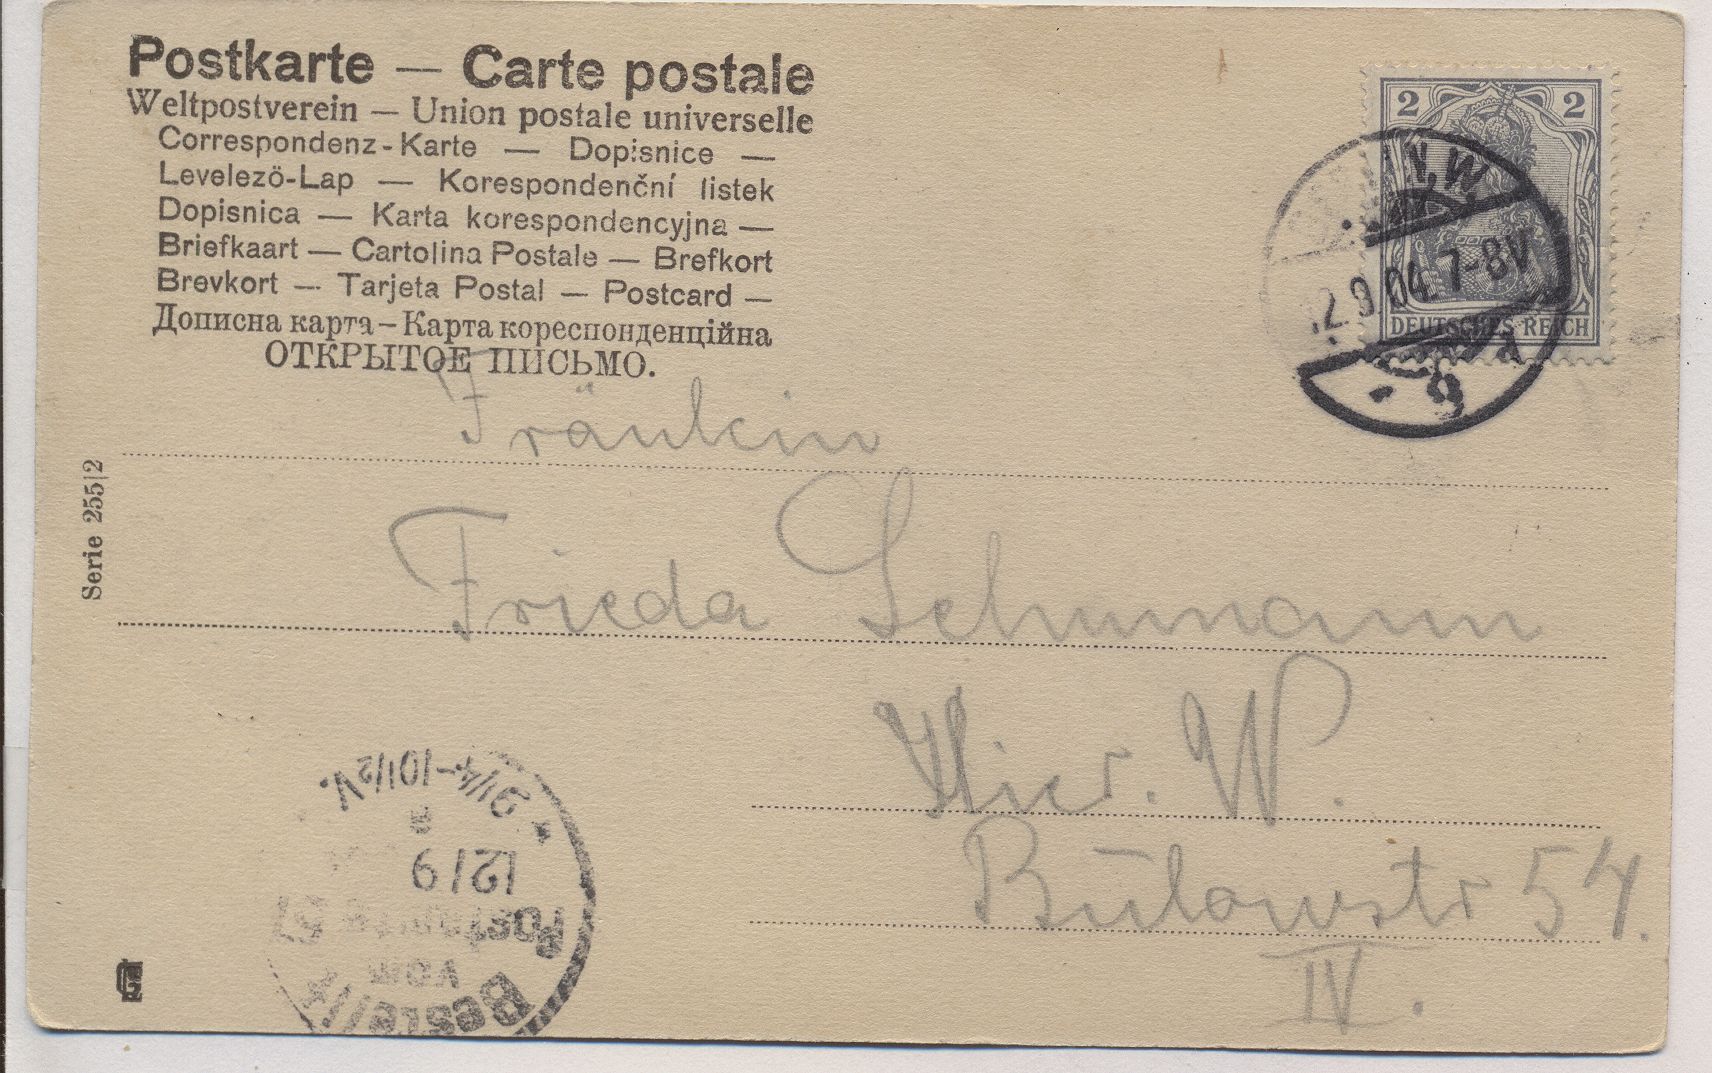 Postkarte — Carte postale
Weltpostverein — Union postale universelle
Correspondenz-Karte — Dopisnice —
Levelezö-Lap — Korespondenční listek
Dopisnica — Karta korespondencyjna —
Briefkaart — Cartolina Postale — Brefkort
Brevkort — Tarjeta Postal — Postcard —
Дописна карта – Карта кореспонденційна
ОТКРЫТОЕ ПИСЬМО.
2 2
DEUTSCHES REICH
W
12.9.04. 7-8V
Fräulein
Frieda Schumann
Hier. W.
Bülowstr 54.
IV.
Serie 255|2
Bestellt
vom
Postamte 57
12/9
9 1/4-10 1/2 V.